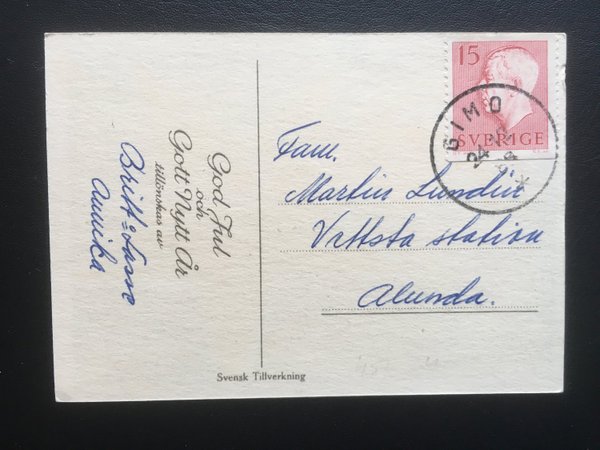 God Jul
och
Gott Nytt År
tillönskas av
Britt o Lasse
Annika
Svensk Tillverkning
15
SVERIGE
GIMO
24
Fam.
Martin Lundin
Vettsta station
Alunda.